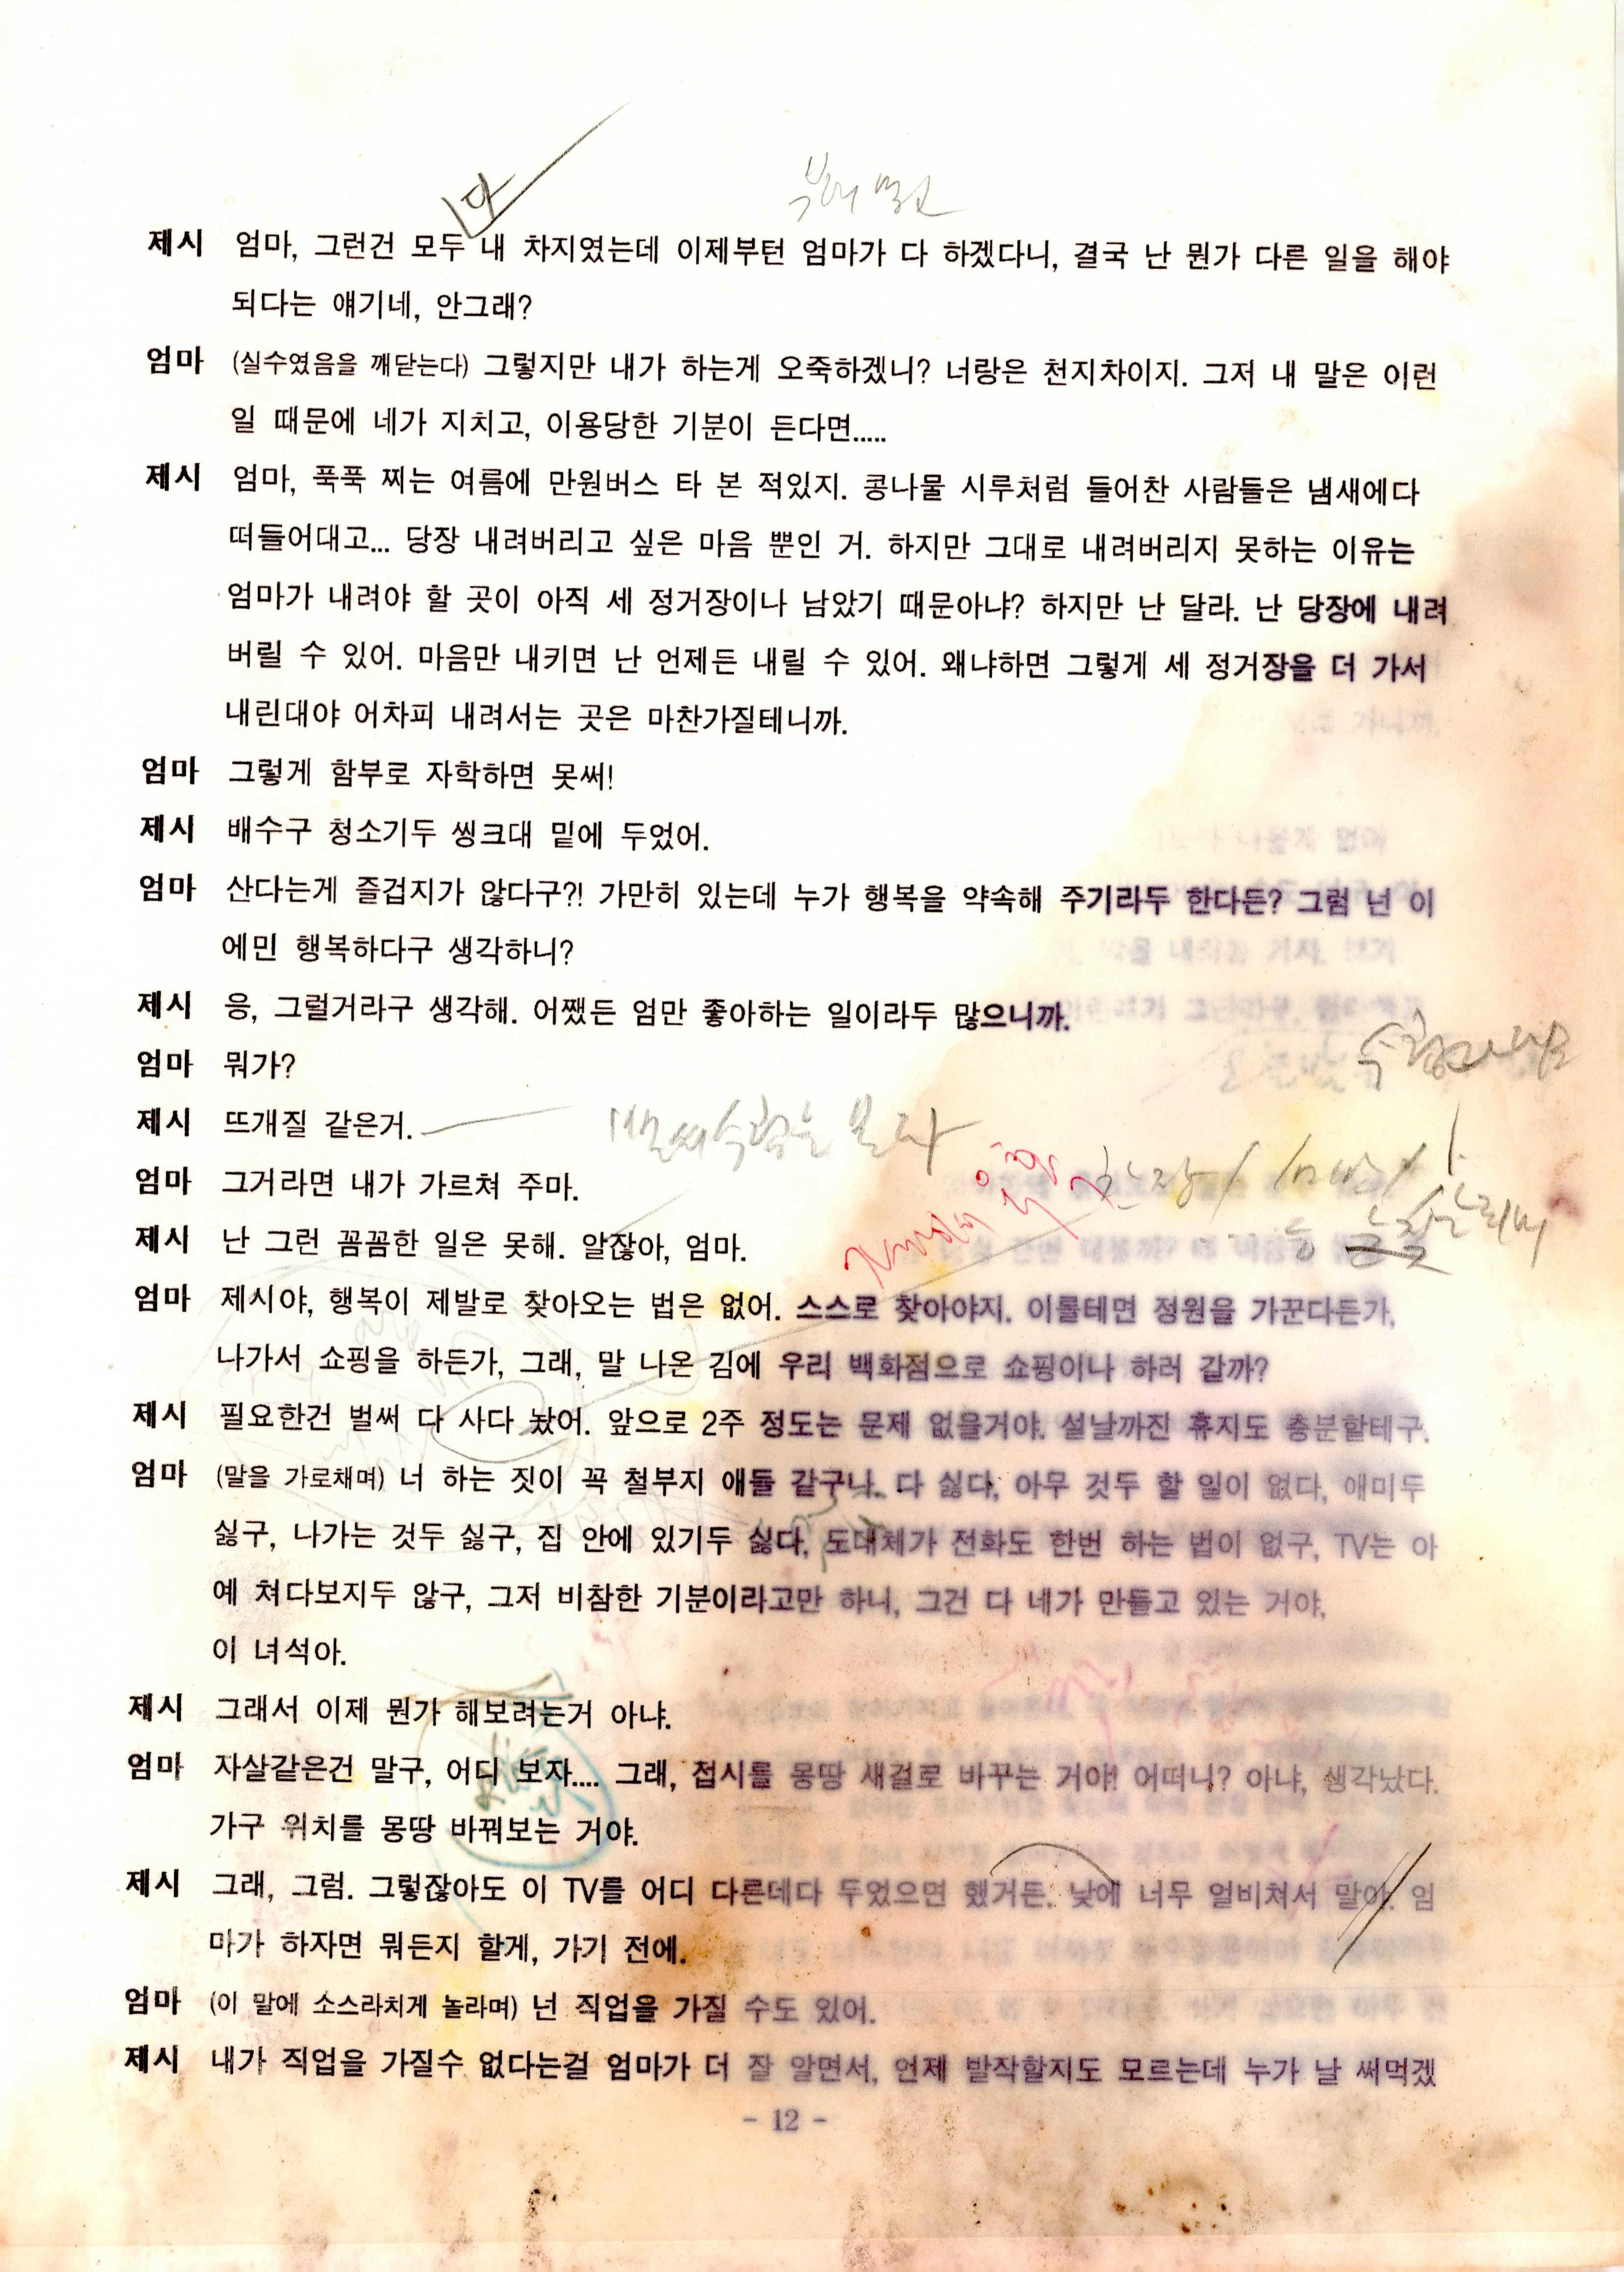 제시 엄마, 그런건 모두 내 차지였는데 이제부턴 엄마가 다 하겠다니, 결국 난 뭔가 다른 일을 해야
되다는 얘기네, 안그래?
엄마 (실수였음을 깨닫는다) 그렇지만 내가 하는게 오죽하겠니? 너랑은 천지차이지. 그저 내 말은 이런
일 때문에 네가 지치고, 이용당한 기분이 든다면.....
제시 엄마, 푹푹 찌는 여름에 만원버스 타 본 적있지. 콩나물 시루처럼 들어찬 사람들은 냄새에다
떠들어대고... 당장 내려버리고 싶은 마음 뿐인 거. 하지만 그대로 내려버리지 못하는 이유는
엄마가 내려야 할 곳이 아직 세 정거장이나 남았기 때문아냐? 하지만 난 달라. 난 당장에 내려
버릴 수 있어. 마음만 내키면 난 언제든 내릴 수 있어. 왜냐하면 그렇게 세 정거장을 더 가서
내린대야 어차피 내려서는 곳은 마찬가질테니까.
엄마 그렇게 함부로 자학하면 못써!
제시 배수구 청소기두 씽크대 밑에 두었어.
엄마 산다는게 즐겁지가 않다구?! 가만히 있는데 누가 행복을 약속해 주기라두 한다든? 그럼 넌 이
에민 행복하다구 생각하니?
제시 응, 그럴거라구 생각해. 어쨌든 엄만 좋아하는 일이라두 많으니까.
엄마 뭐가?
제시 뜨개질 같은거.
엄마 그거라면 내가 가르쳐 주마.
제시 난 그런 꼼꼼한 일은 못해. 알잖아, 엄마.
엄마 제시야, 행복이 제발로 찾아오는 법은 없어. 스스로 찾아야지. 이를테면 정원을 가꾼다든가,
나가서 쇼핑을 하든가, 그래, 말 나온 김에 우리 백화점으로 쇼핑이나 하러 갈까?
제시 필요한건 벌써 다 사다 놨어. 앞으로 2주 정도는 문제 없을거야. 설날까진 휴지도 충분할테구.
엄마 (말을 가로채며) 너 하는 짓이 꼭 철부지 애들 같구나. 다 싫다, 아무 것두 할 일이 없다, 애미두
싫구, 나가는 것두 싫구, 집 안에 있기두 싫다, 도대체가 전화도 한번 하는 법이 없구, TV는 아
예 쳐다보지두 않구, 그저 비참한 기분이라고만 하니, 그건 다 네가 만들고 있는 거야,
이 녀석아.
제시 그래서 이제 뭔가 해보려는거 아냐.
엄마 자살같은건 말구, 어디 보자.... 그래, 접시를 몽땅 새걸로 바꾸는 거야! 어떠니? 아냐, 생각났다.
가구 위치를 몽땅 바꿔보는 거야.
제시 그래, 그럼. 그렇잖아도 이 TV를 어디 다른데다 두었으면 했거든. 낮에 너무 얼비쳐서 말야. 엄
마가 하자면 뭐든지 할게, 가기 전에.
엄마 (이 말에 소스라치게 놀라며) 넌 직업을 가질 수도 있어.
제시 내가 직업을 가질수 없다는걸 엄마가 더 잘 알면서, 언제 발작할지도 모르는데 누가 날 써먹겠
- 12 -